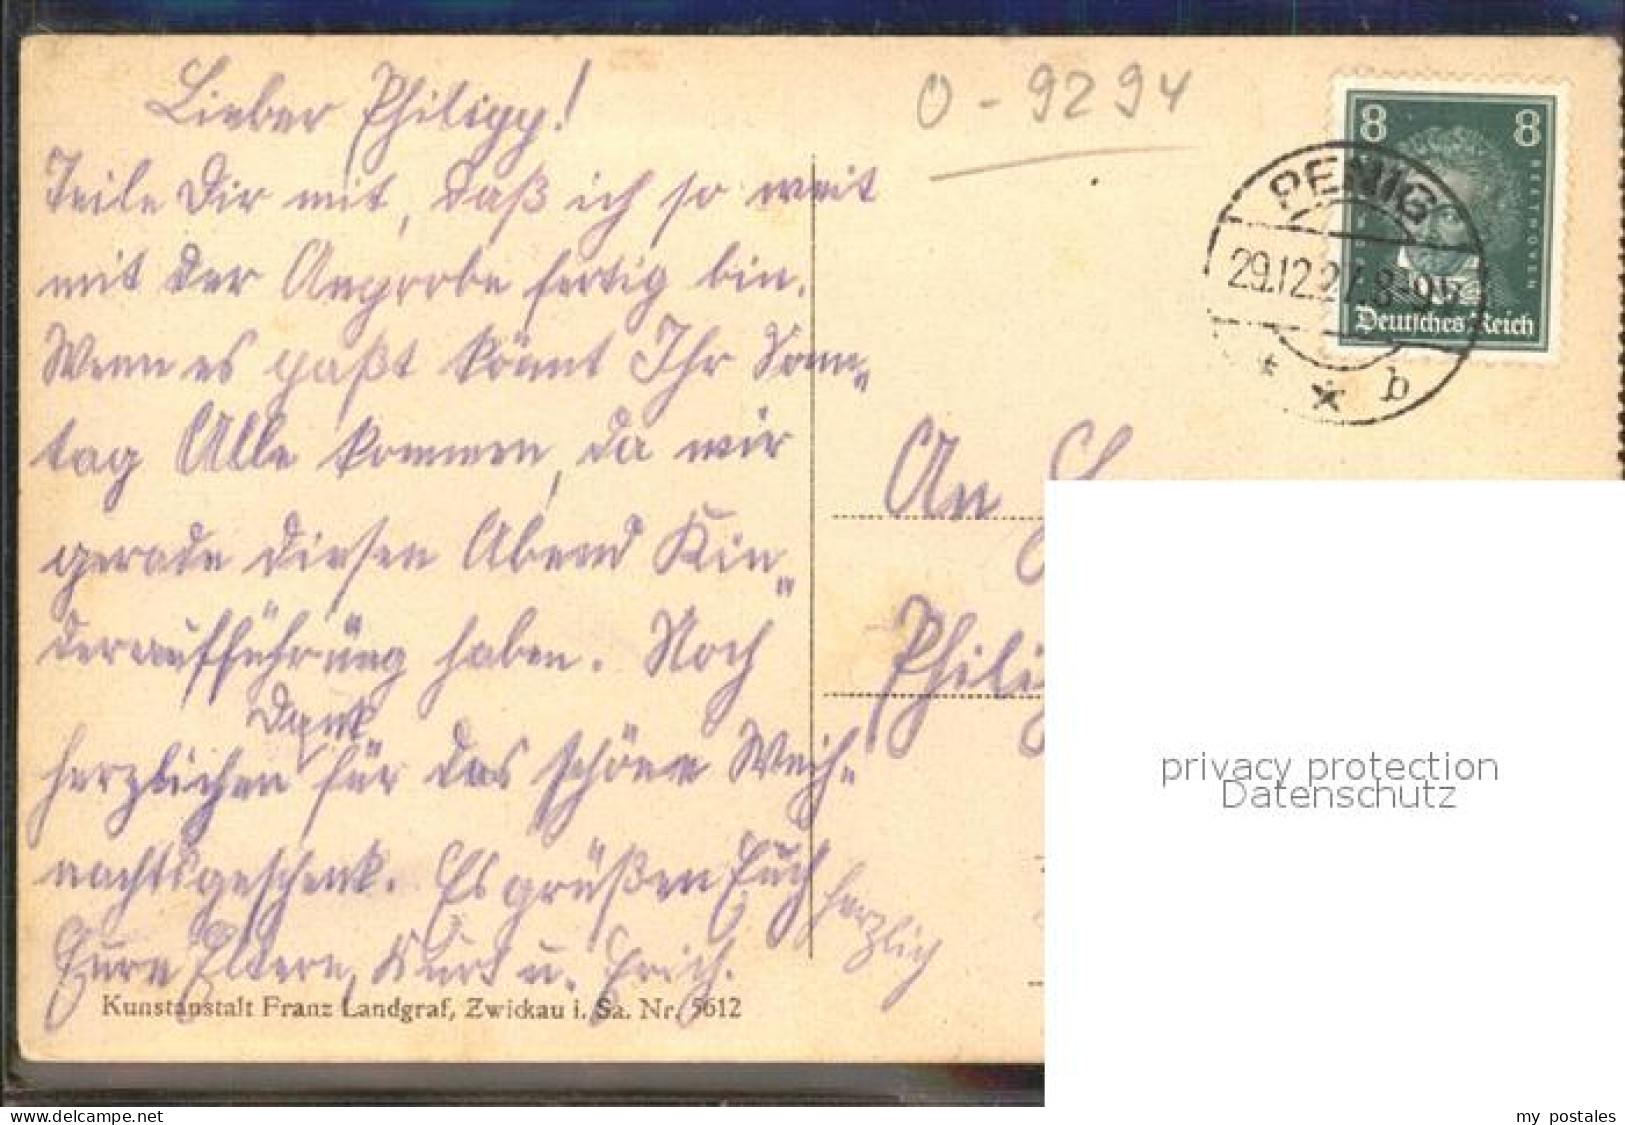 Lieber Philipp!
Teile Dir mit, daß ich so weit
mit der Anprobe fertig bin.
Wenn es paßt könnt Ihr Sonn-
tag Alle kommen, da wir
gerade diesen Abend Kin-
deraufführung haben. Noch
herzlichen Dank für das schöne Weih-
nachtsgeschenk. Es grüßen Euch herzlich
Eure Eltern, Kurt u. Erich.
Kunstanstalt Franz Landgraf, Zwickau i. Sa. Nr. 5612
O-9294
8 8
BEETHOVEN
Deutsches Reich
PENIG
29.12.27. 8-9V
* * b
An
privacy protection
Datenschutz
my postales